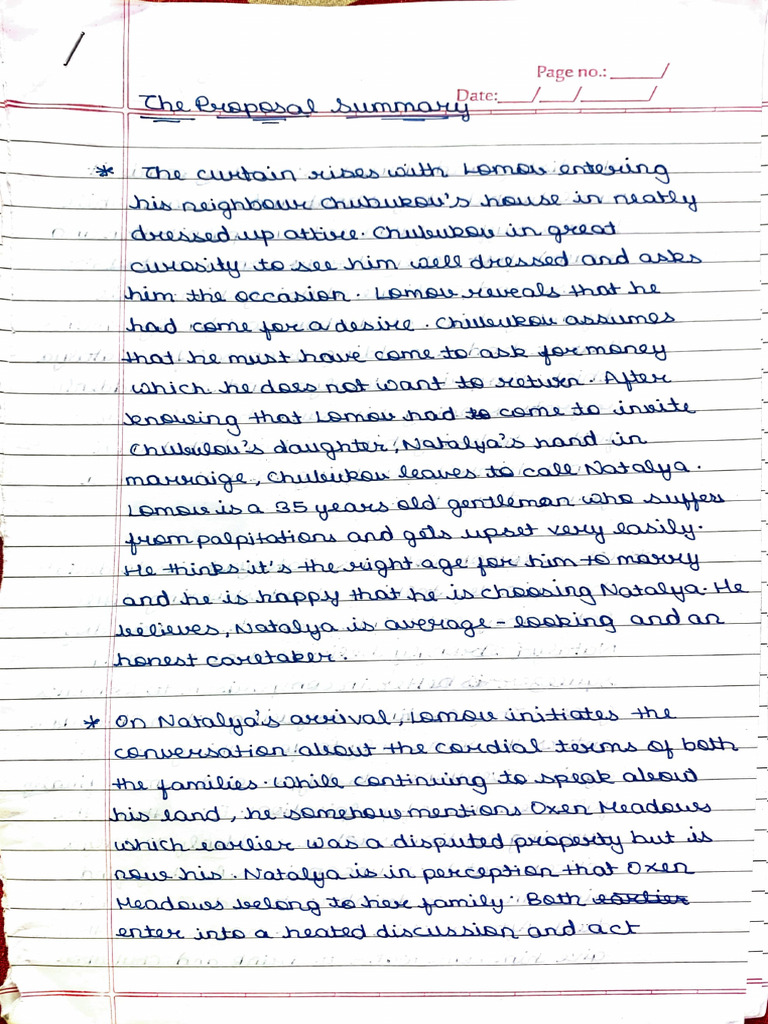 /
Page no.: ____/
The Proposal Summary
Date:___/___/______/
* The curtain rises with Lomov entering
his neighbour Chubukov's house in neatly
dressed up attire. Chubukov in great
curosity to see him well dressed and asks
him the occasion. Lomov reveals that he
had come for a desire. Chubukov assumes
that he must have come to ask for money
which he does not want to return. After
knowing that Lomov had to come to invite
Chubulou's daughter, Natalya's hand in
marraige, Chubukov leaves to call Natalya.
Lomov is a 35 years old gentleman who suffers
from palpitations and gets upset very easily.
He thinks it's the right age for him to marry
and he is happy that he is choosing Natalya. He
believes, Natalya is average-looking and an
honest caretaker.
* On Natalya's arrival, Lomov initiates the
conversation about the cordial terms of both
the families. While continuing to speak about
his land, he somehow mentions Oxen Meadows
which earlier was a disputed property but is
now his. Natalya is in perception that Oxen
Meadows belong to her family. Both earlier
enter into a heated discussion and act